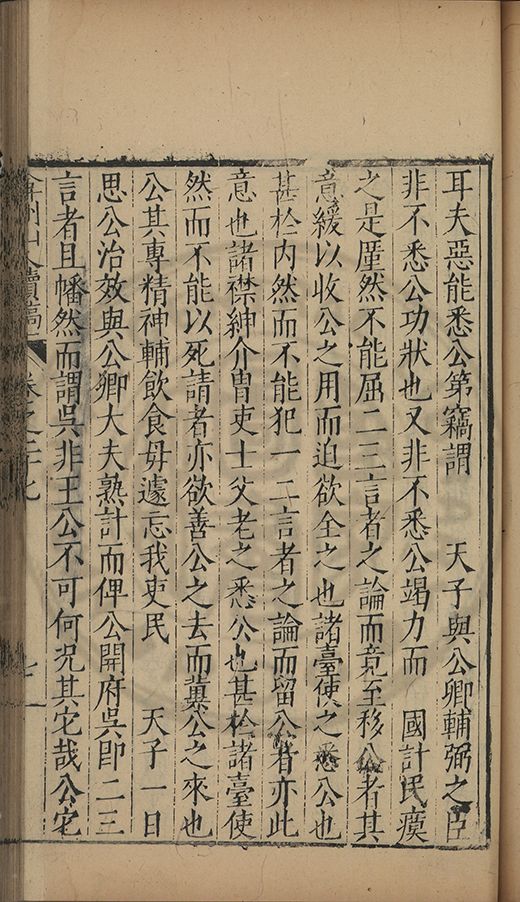 耳夫惡能悉公第竊謂　　天子與公卿輔弼之臣
非不悉公功狀也又非不悉公竭力而　國計民瘼
之是厪然不能屈二三言者之論而竟至移公者其
意緩以收公之用而迫欲全之也諸臺使之悉公也
甚於內然而不能犯一二言者之論而留公者亦此
意也諸襟紳介冑吏士父老之悉公也甚於諸臺使
然而不能以死請者亦欲善公之去而冀公之來也
公其專精神輔飲食毋遽忘我吏民　　天子一日
思公治效與公卿大夫熟計而俾公開府吳即二三
言者且幡然而謂吳非王公不可何況其它哉公它
弇州山人續稿　卷之二十七　七